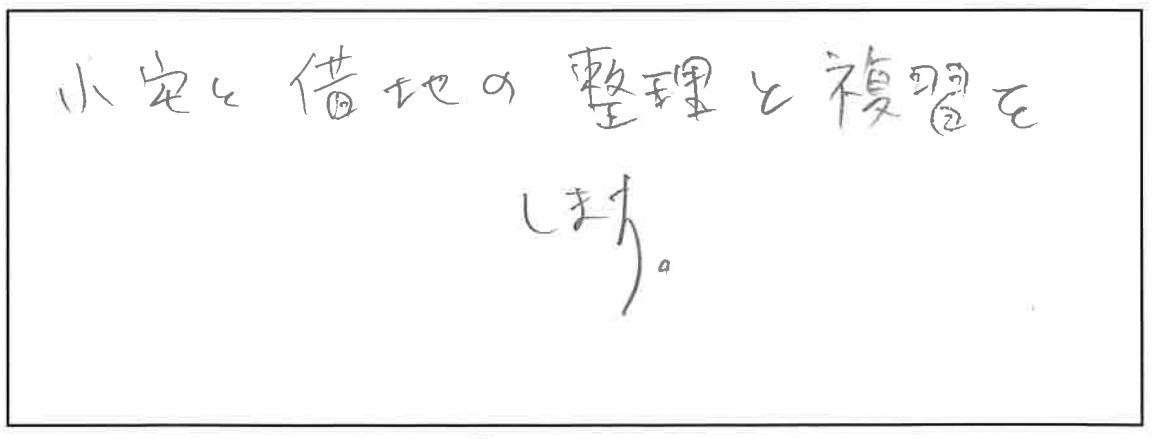 小宅と借地の整理と複習を
します。